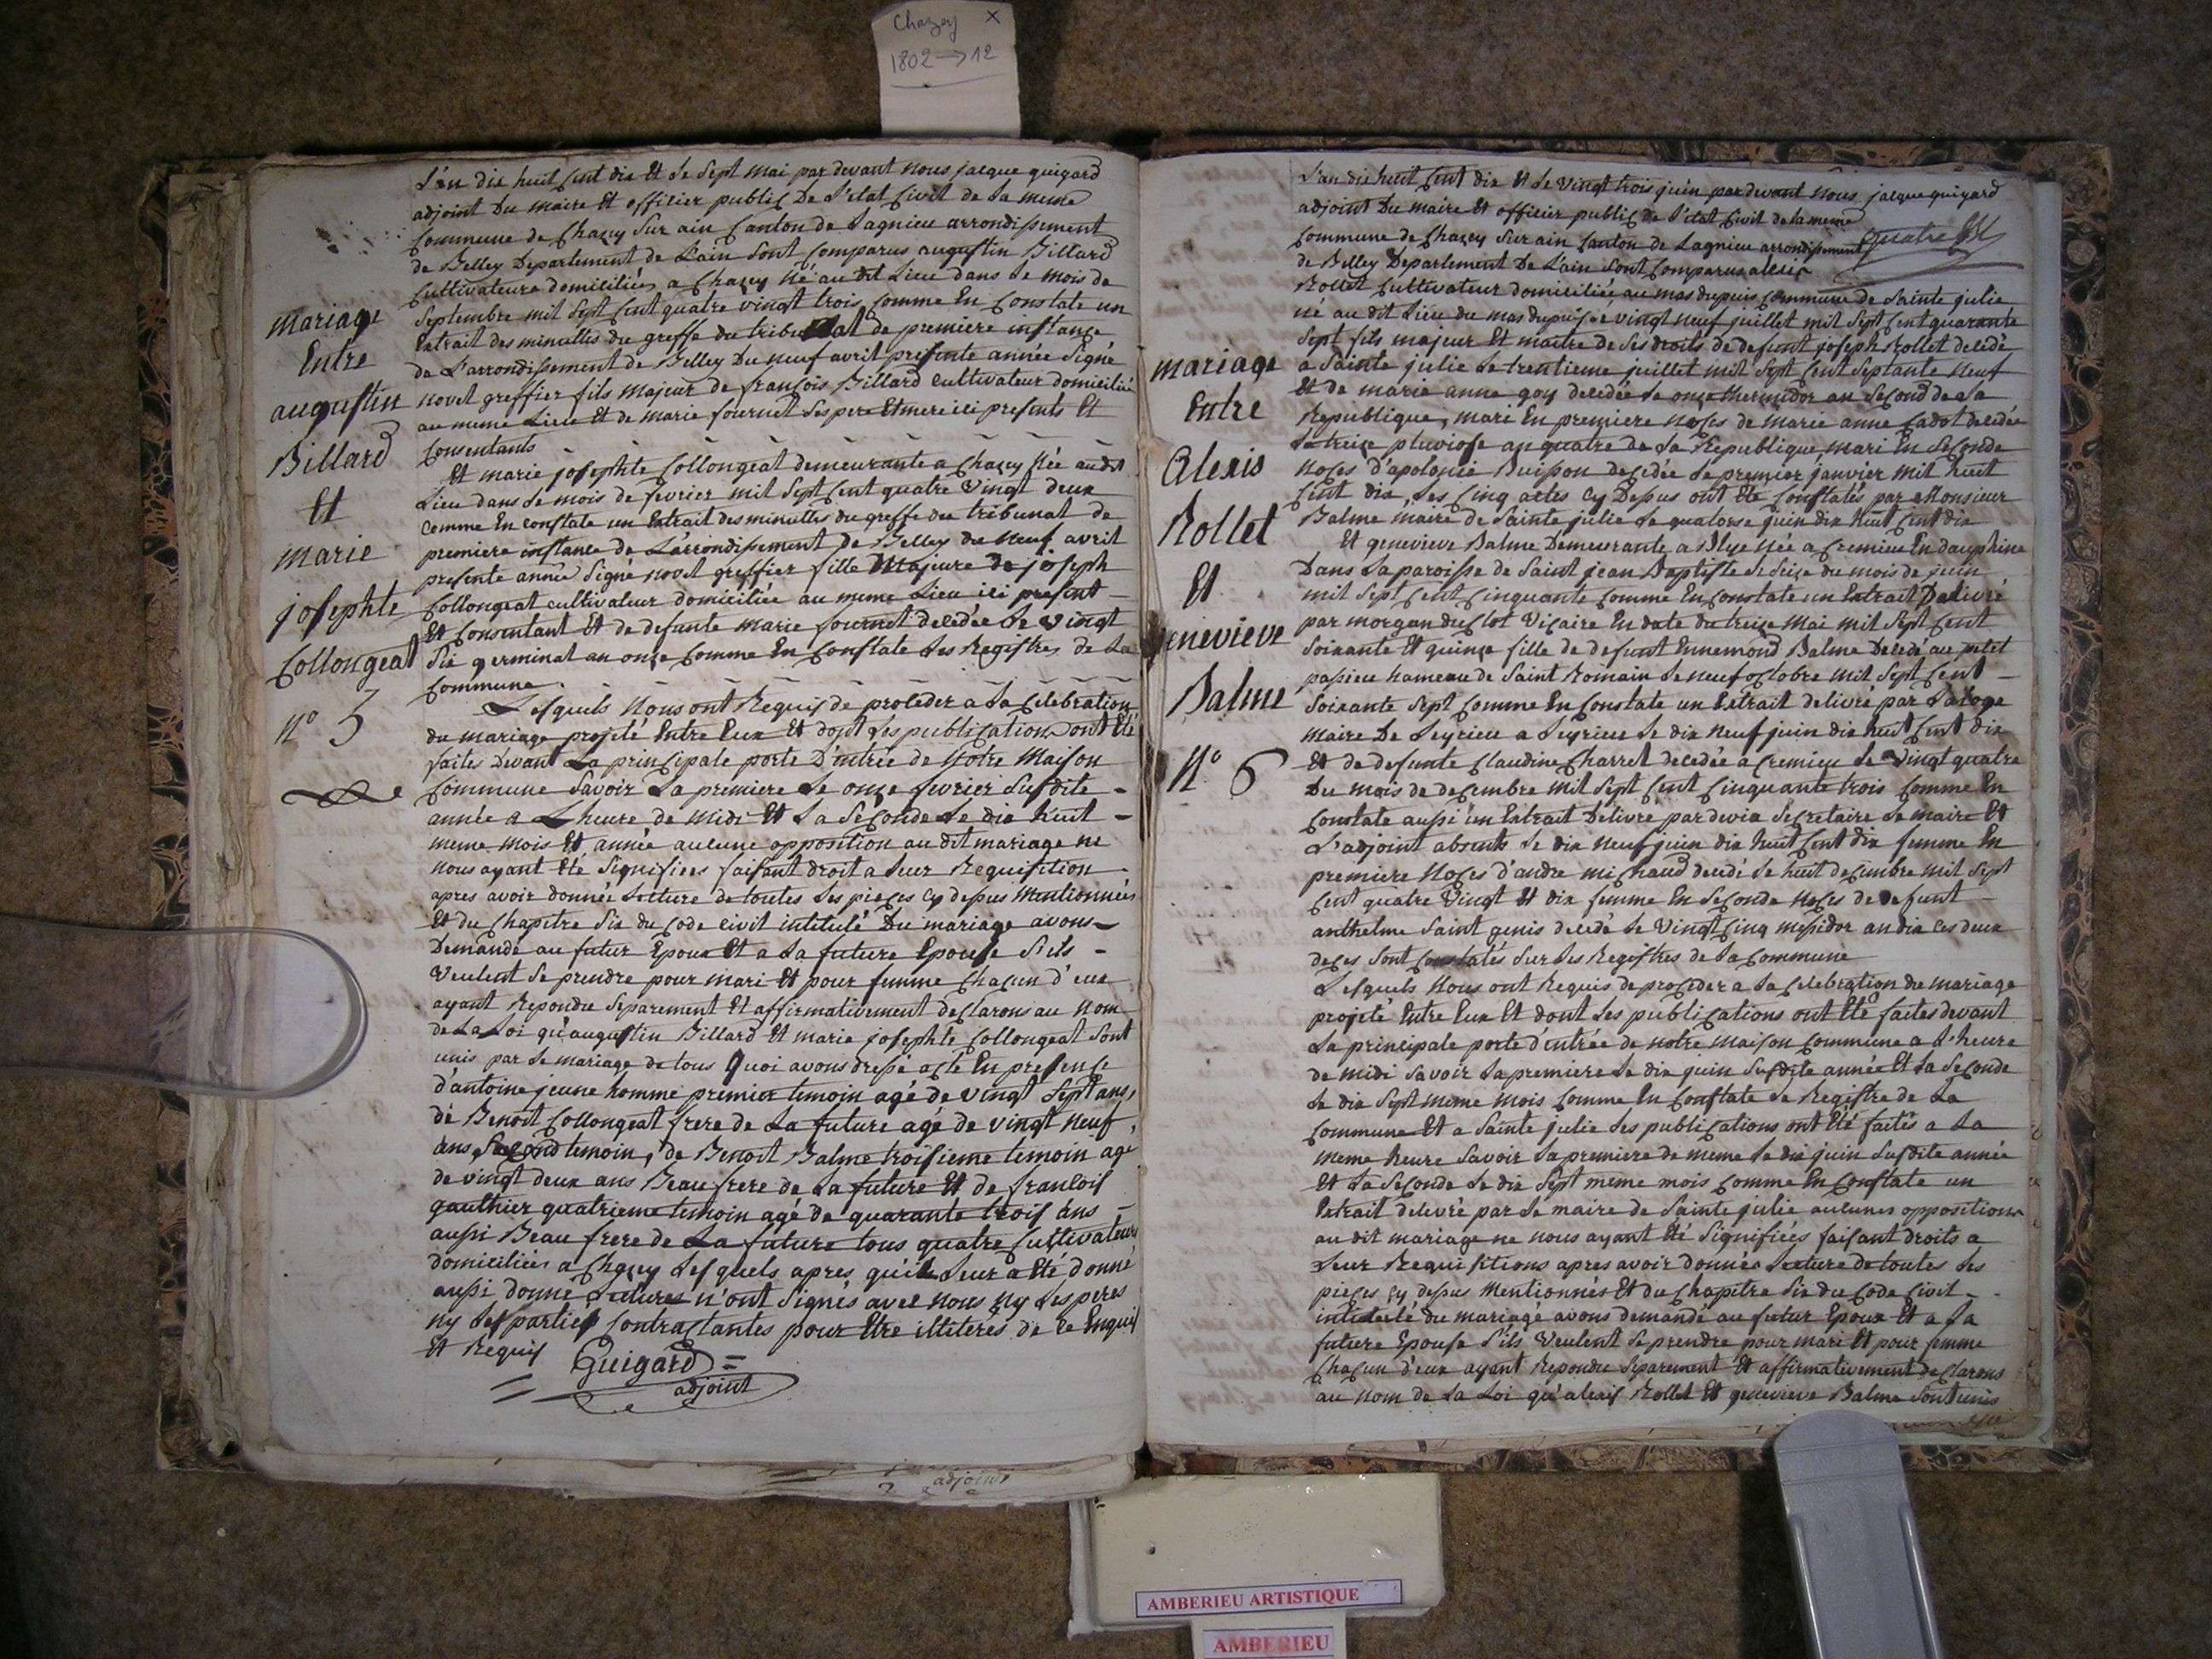 Chazey X
1802 → 12
L'an dix huit cent dix Et Le Sept mai par devant nous jacque guigard
adjoint Du maire Et officier public De L'etat Civil de La meme
Commune de Chazey Sur ain Canton de Lagnieu arrondissement
de Belley Departement de L'ain Sont Comparus augustin Billard
Cultivateur domiciliée a Chazey Né au dit Lieu dans Le mois de
Septembre mil Sept Cent quatre vingt trois Comme En Constate un
Extrait des minuttes du greffe du tribunal de premiere instance
de L'arrondissement de Belley Du neuf avril presente année Signé
novet greffier fils majeur de françois Billard Cultivateur domicilié
au meme Lieu Et de marie fournet Ses pere Et mere ici presents Et
Consentants
Et marie josephte Collongeat demeurante a Chazey Née au dit
Lieu dans Le mois de fevrier mil Sept Cent quatre Vingt deux
Comme En Constate un Extrait des minuttes du greffe du tribunal de
premiere instance de L'arrondissement de Belley du neuf avril
presente année Signé novet greffier fille Majeure de joseph
Collongeat cultivateur domiciliée au meme Lieu ici present
Et Consentant Et de defunte marie fournet decedée Le vingt
Six germinal an onze Comme En Constate Les Registres de La
Commune
Lesquels Nous ont Requis de proceder a La Celebration
du mariage projeté Entre Eux Et dont Les publications ont Eté
faites Devant La principale porte D'entrée de Notre Maison
Commune Savoir La premiere Le onze fevrier Susdite
année a L heure de Midi Et La Seconde Le dix huit
meme mois Et année aucune opposition au dit mariage ne
nous ayant Eté Signifiées faisant droit a Leur Requisition
apres avoir donnée Lecture de toutes Les pieces cy dessus Mentionnées
Et du Chapitre Six du Code Civil intitulé Du mariage avons
Demandé au futur Epoux Et a La future Epouse S'ils
Veulent Se prendre pour mari Et pour femme Chacun d'eux
ayant Repondu Separement Et affirmativement declarons au Nom
de La Loi qu'augustin Billard Et marie josephte Collongeat Sont
unis par Le mariage de tous Quoi avons dressé acte En presence
d'antoine jeune homme premier temoin agé de vingt Sept ans,
de Benoit Collongeat frere de La future agé de vingt neuf
ans Second temoin, de Benoit Balme troisieme temoin agé
de vingt deux ans Beau frere de La future Et de francois
gauthier quatrieme temoin agé de quarante trois ans
aussi Beau frere de La future tous quatre Cultivateurs
domiciliées a Chazey Lesquels apres qu'il Leur a Eté donné
aussi donné Lectures n'ont Signés avec nous ny Les peres
ny Les parties Contractantes pour Etre illiteres de ce Enquis
Et Requis Guigard
adjoint
mariage
Entre
augustin
Billard
Et
marie
josephte
Collongeat
n° 5
L'an dix huit Cent dix Et Le Vingt trois juin par devant Nous jacque guigard
adjoint Du maire Et officier public de L'etat Civil de La meme
Commune de Chazey Sur ain Canton de Lagnieu arrondissement
de Belley Departement De L'ain Sont Comparus alexis
Rollet Cultivateur domiciliée au mas dupuis Commune de Sainte julie
né au dit Lieu du mas dupuis Le vingt neuf juillet mil Sept Cent quarante
Sept fils majeur Et maitre de Ses droits de defunt joseph Rollet decedé
a Sainte julie Le trentieme juillet mil Sept Cent Septante neuf
Et de marie anne goy decedée Le onze thermidor an Second de La
Republique, mari En premiere Noces de marie anne Cadot decedée
Le treize pluviose an quatre de La Republique, mari En Seconde
Noces d'apolonie Buisson decedée Le premier janvier mil huit
Cent dix, Les Cinq actes cy Dessus ont Eté Constatés par Monsieur
Balme maire de Sainte julie Le quatorse juin dix huit Cent dix
Et genevieve Balme Demeurante a Blye Née a Cremieu En dauphine
Dans La paroisse de Saint jean Baptiste Le Seize du mois de juin
mil Sept Cent Cinquante Comme En Constate un Extrait Delivré
par morgan duclot Vicaire En date du treize Mai mil Sept Cent
Soixante Et quinze fille de defunt Ennemond Balme Decedé au petit
passieu hameau de Saint Romain Le neuf octobre mil Sept Cent
Soixante Sept Comme En Constate un Extrait delivré par
maire De Leyrieu a Leyrieu Le dix neuf juin dix huit Cent dix
Et de defunte Claudine Charret decedée a Cremieu Le Vingt quatre
Du mois de decembre mil Sept Cent Cinquante trois Comme En
Constate aussi un Extrait Delivré par Secretaire Le maire Et
L'adjoint absents Le dix neuf juin dix huit Cent dix femme En
premiere Noces d'andre michaud decedé Le huit decembre mil Sept
Cent quatre Vingt Et dix femme En Seconde Noces de defunt
anthelme Saint genis decedé Le Vingt Cinq messidor an dix Ces deux
deces Sont Constatés Sur Les Registres de La Commune
Lesquels Nous ont Requis de proceder a La Celebration du mariage
projeté Entre Eux Et dont Les publications ont Eté faites devant
La principale porte d'entrée de notre maison Commune a L'heure
de midi Savoir La premiere Le dix juin Susdite année Et La Seconde
Le dix Sept meme mois Comme En Constate Le Registre de La
Commune Et a Sainte julie Les publications ont Eté faites a La
meme heure Savoir La premiere de meme Le dix juin Susdite année
Et La Seconde Le dix Sept meme mois Comme En Constate un
Extrait delivré par Le maire de Sainte julie aucunes oppositions
au dit mariage ne nous ayant Eté Signifiées faisant droits a
Leur Requisitions apres avoir donnée Lecture de toutes Les
pieces cy dessus Mentionnés Et du Chapitre Six du Code Civil
intitulé du mariage avons demandé au futur Epoux Et a La
future Epouse S'ils Veulent Se prendre pour mari Et pour femme
Chacun d'eux ayant Repondu Separement Et affirmativement declarons
au Nom de La Loi qu'alexis Rollet Et genevieve Balme Sont unis
mariage
Entre
Alexis
Rollet
Et
enevieve
Balme
N° 6
adjoint
AMBERIEU ARTISTIQUE
AMBERIEU